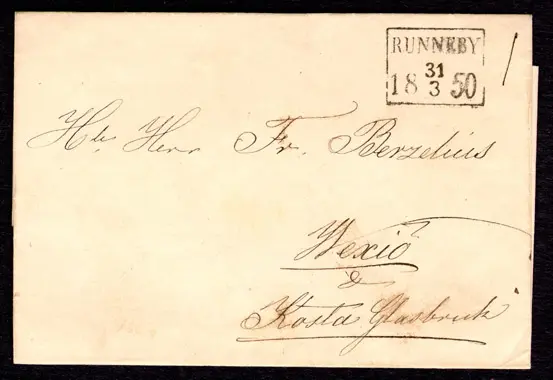 RUNNEBY
31
18 3 50
Hr. Herr Fr. Berzelius
Wexiö
&
Kosta Glasbruk